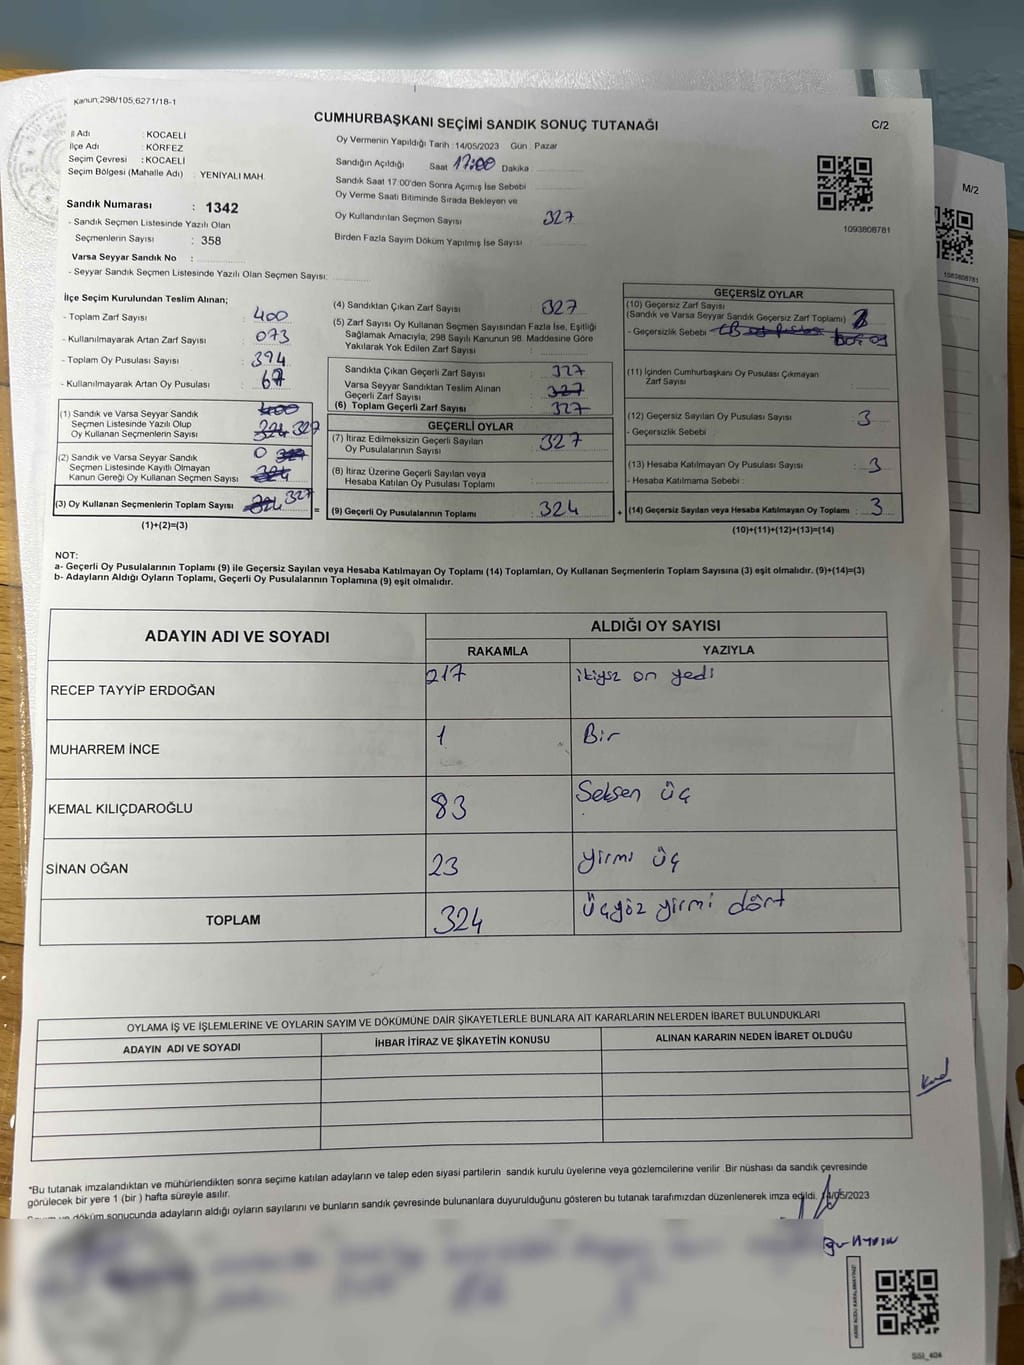 Kanun,298/105,6271/18-1
CUMHURBAŞKANI SEÇİMİ SANDIK SONUÇ TUTANAĞI
C/2
M/2
İl Adı : KOCAELİ
İlçe Adı : KÖRFEZ
Seçim Çevresi : KOCAELİ
Seçim Bölgesi (Mahalle Adı) : YENİYALI MAH.
Sandık Numarası : 1342
- Sandık Seçmen Listesinde Yazılı Olan
Seçmenlerin Sayısı : 358
Varsa Seyyar Sandık No :
- Seyyar Sandık Seçmen Listesinde Yazılı Olan Seçmen Sayısı:
Oy Vermenin Yapıldığı Tarih :14/05/2023 Gün : Pazar
Sandığın Açıldığı Saat 17:00 Dakika :
Sandık Saat 17:00'den Sonra Açımış İse Sebebi
Oy Verme Saati Bitiminde Sırada Bekleyen ve
Oy Kullandırılan Seçmen Sayısı 327
Birden Fazla Sayım Döküm Yapılmış İse Sayısı :
1093808781
1093808781
İlçe Seçim Kurulundan Teslim Alınan;
- Toplam Zarf Sayısı : 400
- Kullanılmayarak Artan Zarf Sayısı : 073
- Toplam Oy Pusulası Sayısı : 394
- Kullanılmayarak Artan Oy Pusulası : 67
(1) Sandık ve Varsa Seyyar Sandık 400
Seçmen Listesinde Yazılı Olup
Oy Kullanan Seçmenlerin Sayısı 324 327
(2) Sandık ve Varsa Seyyar Sandık 0 327
Seçmen Listesinde Kayıtlı Olmayan
Kanun Gereği Oy Kullanan Seçmen Sayısı 324
(3) Oy Kullanan Seçmenlerin Toplam Sayısı 324 327
(1)+(2)=(3)
(4) Sandıktan Çıkan Zarf Sayısı : 327
(5) Zarf Sayısı Oy Kullanan Seçmen Sayısından Fazla İse, Eşitliği
Sağlamak Amacıyla; 298 Sayılı Kanunun 98. Maddesine Göre
Yakılarak Yok Edilen Zarf Sayısı :
Sandıkta Çıkan Geçerli Zarf Sayısı : 327
Varsa Seyyar Sandıktan Teslim Alınan
Geçerli Zarf Sayısı : 327
(6) Toplam Geçerli Zarf Sayısı : 327
GEÇERLİ OYLAR
(7) İtiraz Edilmeksizin Geçerli Sayılan
Oy Pusulalarının Sayısı : 327
(8) İtiraz Üzerine Geçerli Sayılan veya
Hesaba Katılan Oy Pusulası Toplamı
= (9) Geçerli Oy Pusulalarının Toplamı : 324
GEÇERSİZ OYLAR
(10) Geçersiz Zarf Sayısı
(Sandık ve Varsa Seyyar Sandık Geçersiz Zarf Toplamı)
- Geçersizlik Sebebi :
(11) İçinden Cumhurbaşkanı Oy Pusulası Çıkmayan
Zarf Sayısı :
(12) Geçersiz Sayılan Oy Pusulası Sayısı : 3
- Geçersizlik Sebebi :
(13) Hesaba Katılmayan Oy Pusulası Sayısı : 3
- Hesaba Katılmama Sebebi :
+ (14) Geçersiz Sayılan veya Hesaba Katılmayan Oy Toplamı : 3
(10)+(11)+(12)+(13)=(14)
NOT:
a- Geçerli Oy Pusulalarının Toplamı (9) ile Geçersiz Sayılan veya Hesaba Katılmayan Oy Toplamı (14) Toplamları, Oy Kullanan Seçmenlerin Toplam Sayısına (3) eşit olmalıdır. (9)+(14)=(3)
b- Adayların Aldığı Oyların Toplamı, Geçerli Oy Pusulalarının Toplamına (9) eşit olmalıdır.
ADAYIN ADI VE SOYADI
ALDIĞI OY SAYISI
RAKAMLA YAZIYLA
RECEP TAYYİP ERDOĞAN 217 ikiyüz on yedi
MUHARREM İNCE 1 Bir
KEMAL KILIÇDAROĞLU 83 Seksen üç
SİNAN OĞAN 23 yirmi üç
TOPLAM 324 üçyüz yirmi dört
OYLAMA İŞ VE İŞLEMLERİNE VE OYLARIN SAYIM VE DÖKÜMÜNE DAİR ŞİKAYETLERLE BUNLARA AİT KARARLARIN NELERDEN İBARET BULUNDUKLARI
ADAYIN ADI VE SOYADI İHBAR İTİRAZ VE ŞİKAYETİN KONUSU ALINAN KARARIN NEDEN İBARET OLDUĞU
*Bu tutanak imzalandıktan ve mühürlendikten sonra seçime katılan adayların ve talep eden siyasi partilerin sandık kurulu üyelerine veya gözlemcilerine verilir .Bir nüshası da sandık çevresinde
görülecek bir yere 1 (bir ) hafta süreyle asılır.
Sayım ve döküm sonucunda adayların aldığı oyların sayılarını ve bunların sandık çevresinde bulunanlara duyurulduğunu gösteren bu tutanak tarafımızdan düzenlenerek imza edildi. 14/05/2023
KARE KODU KARALAMAYINIZ!